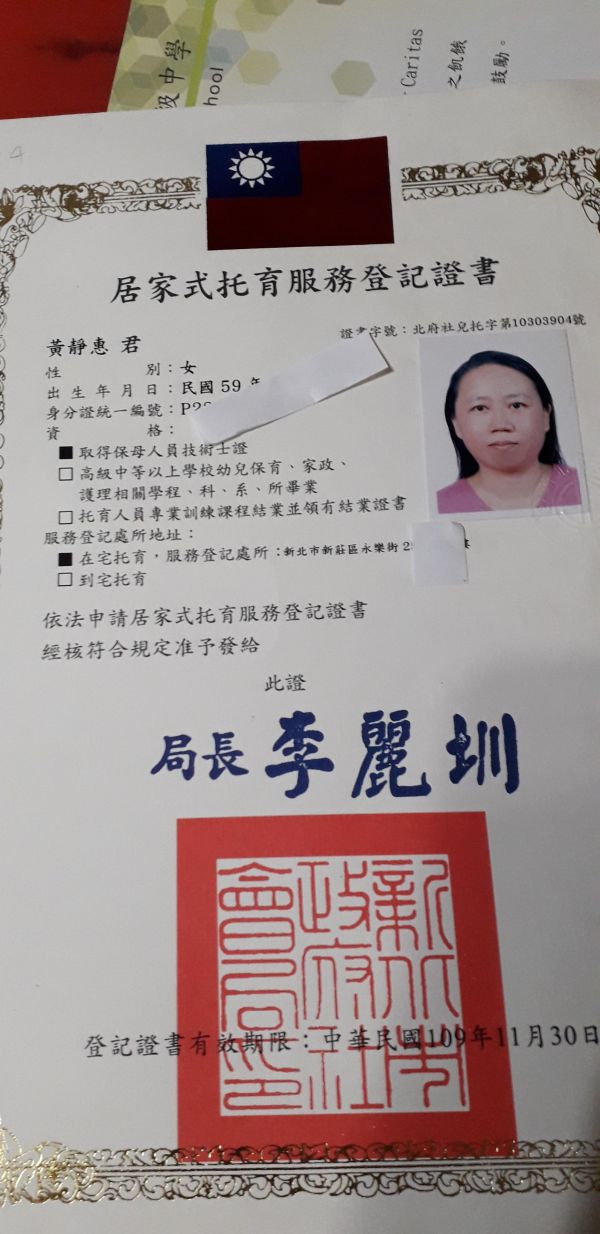 級中學
hool
Caritas
之飢餓
鼓勵。
居家式托育服務登記證書
證書字號：北府社兒托字第10303904號
黃靜惠 君
性別：女
出生年月日：民國 59 年
身分證統一編號：P22
資格：
■ 取得保母人員技術士證
□ 高級中等以上學校幼兒保育、家政、
護理相關學程、科、系、所畢業
□ 托育人員專業訓練課程結業並領有結業證書
服務登記處所地址：
■ 在宅托育，服務登記處所：新北市新莊區永樂街 2
□ 到宅托育
依法申請居家式托育服務登記證書
經核符合規定准予發給
此證
局長 李麗圳
新北市政府社會局印
登記證書有效期限：中華民國109年11月30日